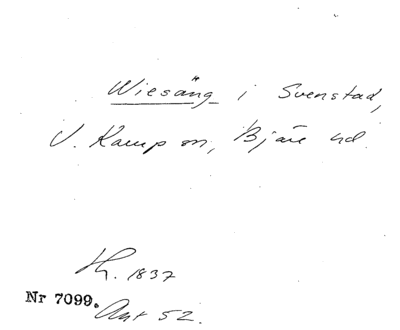 Wiesäng i Svenstad,
V. Karup sn, Bjäre hd.
h. 1837
Nr 7099.
Ant 52.